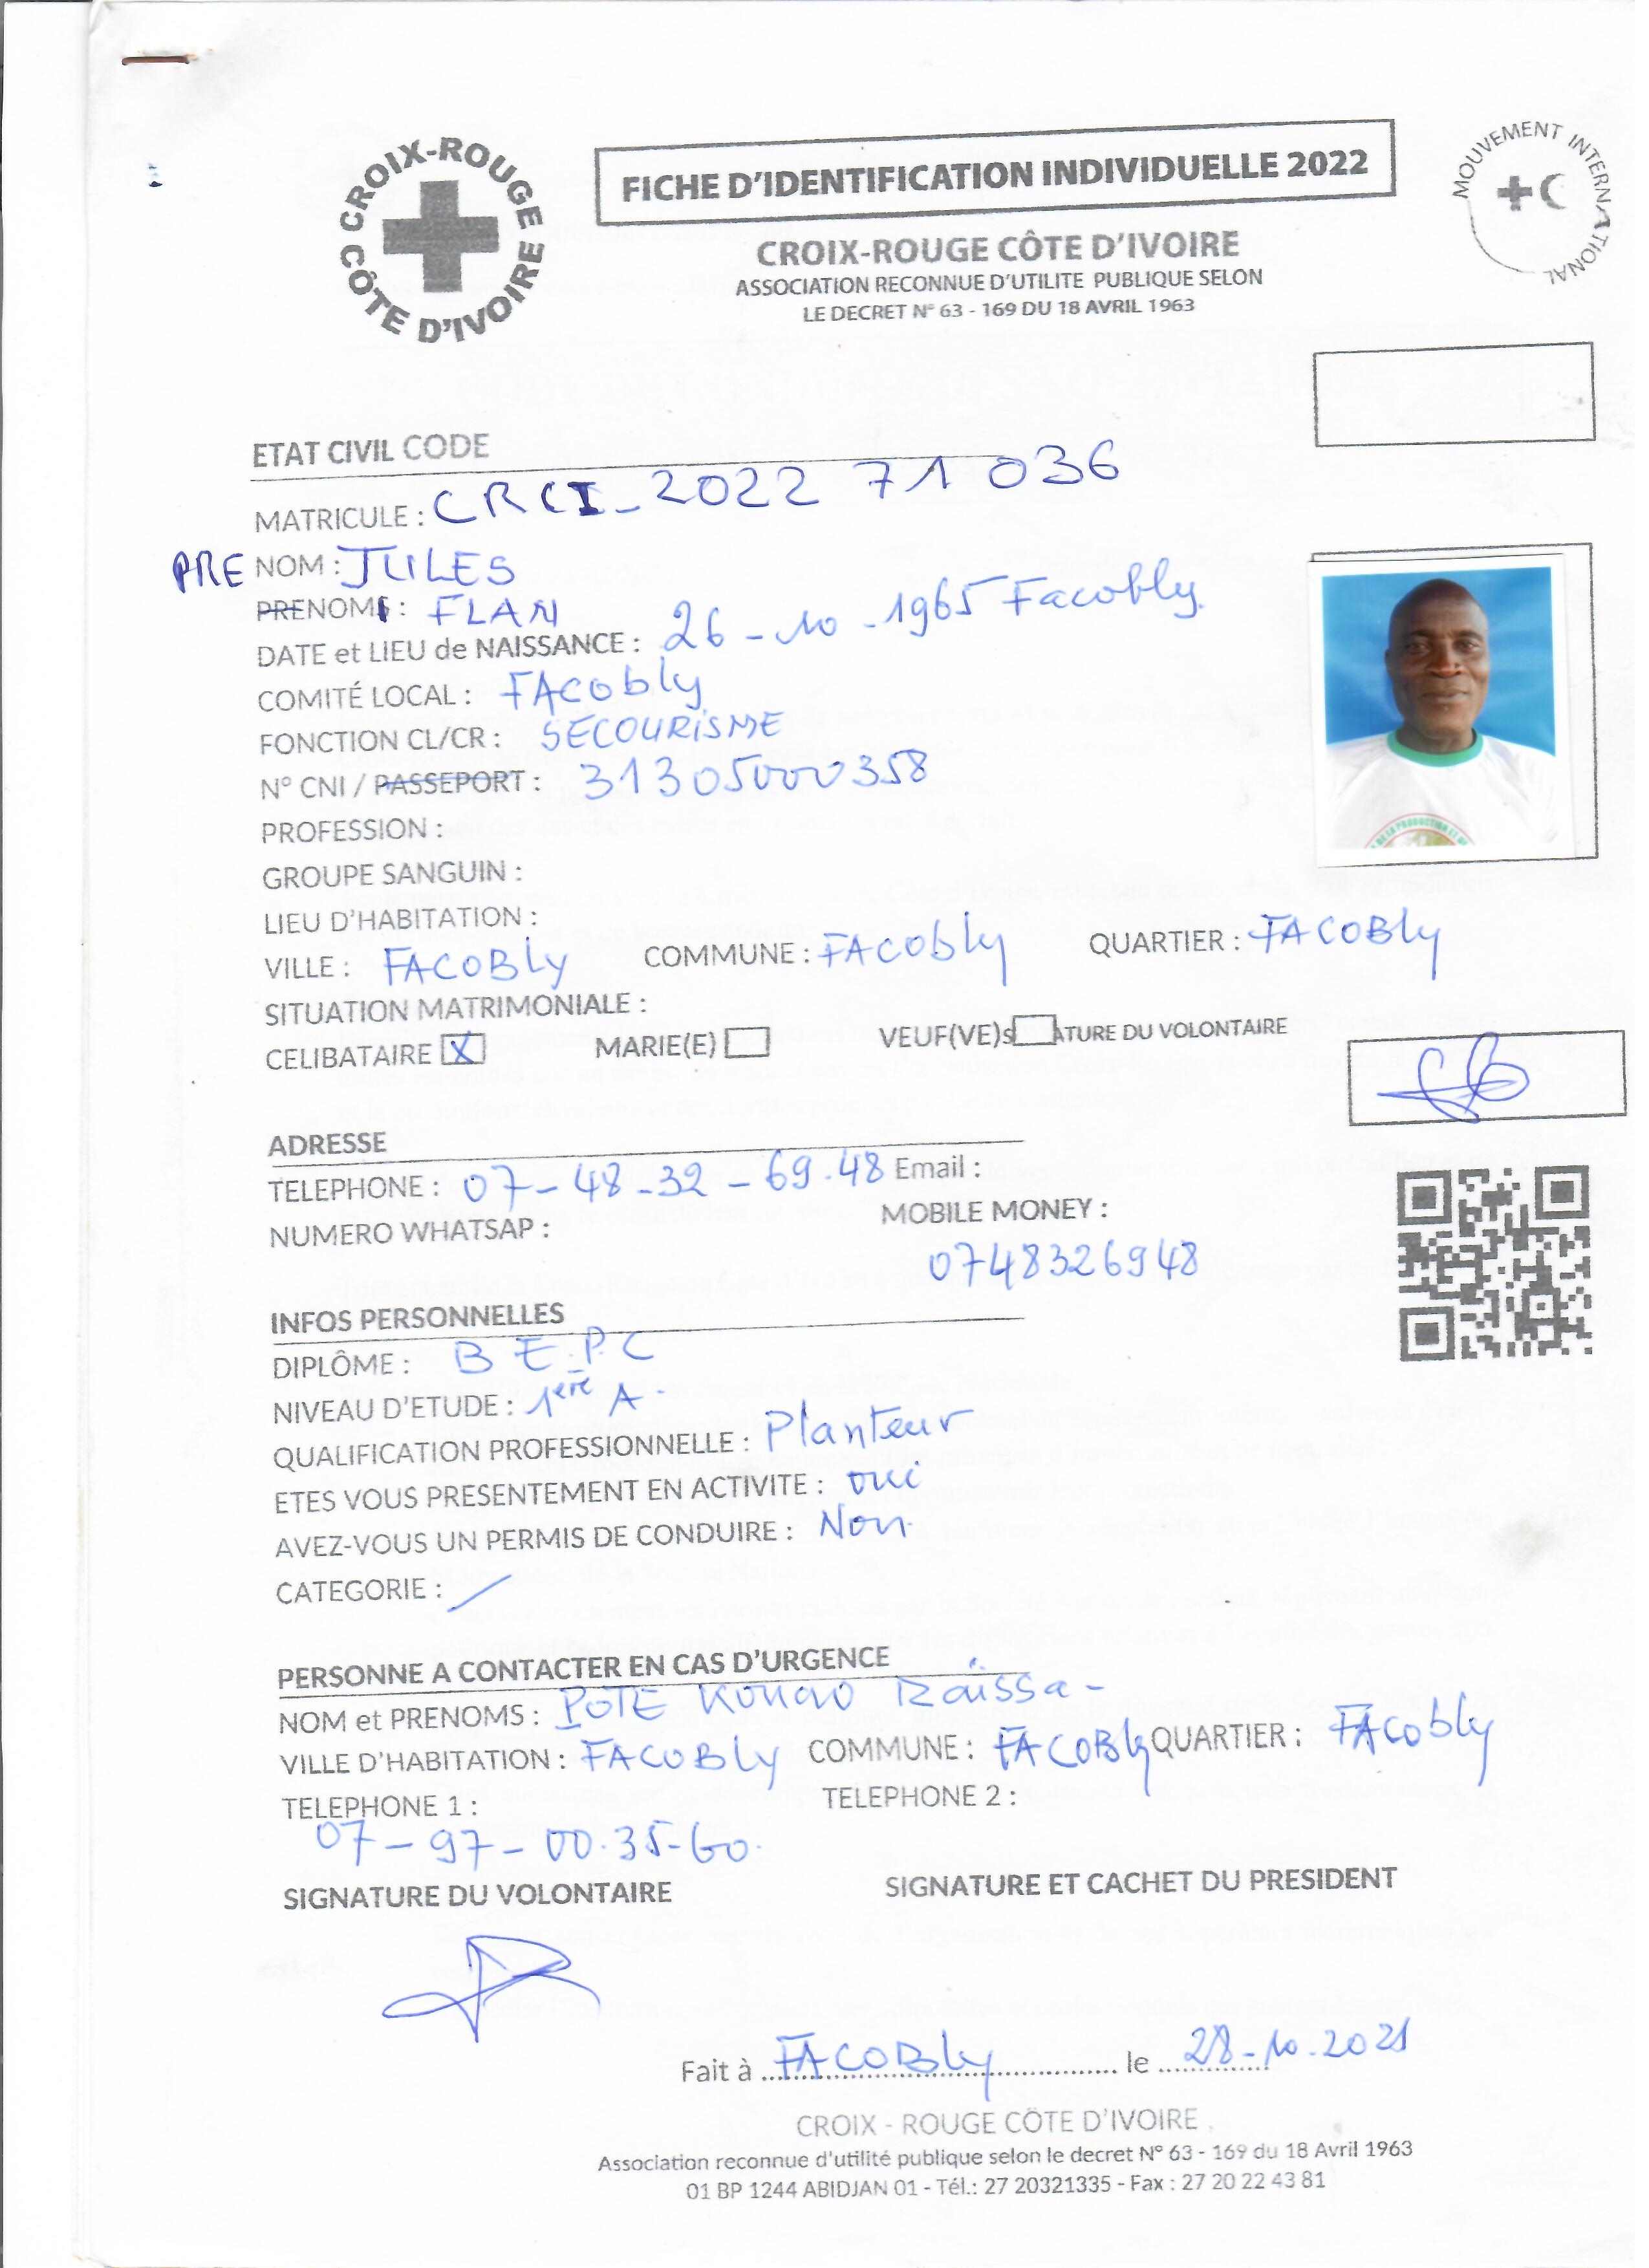 CROIX-ROUGE CÔTE D'IVOIRE
FICHE D'IDENTIFICATION INDIVIDUELLE 2022
MOUVEMENT INTERNATIONAL
CROIX-ROUGE CÔTE D'IVOIRE
ASSOCIATION RECONNUE D'UTILITE PUBLIQUE SELON
LE DECRET N° 63 - 169 DU 18 AVRIL 1963
ETAT CIVIL CODE
MATRICULE : CRCI_2022 71 036
PRE NOM : JULES
PRENOM : FLAN
DATE et LIEU de NAISSANCE : 26 - 10 - 1965 Facobly.
COMITÉ LOCAL : FACobly
FONCTION CL/CR : SECOURISME
N° CNI / PASSEPORT : 31305000358
DE LA PRODUCTION ET
PROFESSION :
GROUPE SANGUIN :
LIEU D'HABITATION :
VILLE : FACOBLY COMMUNE : FACObly QUARTIER : FACOBly
SITUATION MATRIMONIALE :
CELIBATAIRE X MARIE(E) VEUF(VE)s ATURE DU VOLONTAIRE
ADRESSE
TELEPHONE : 07 - 48 - 32 - 69.48 Email :
NUMERO WHATSAP : MOBILE MONEY :
0748326948
INFOS PERSONNELLES
DIPLÔME : B E.P.C
NIVEAU D'ETUDE : 1ère A.
QUALIFICATION PROFESSIONNELLE : Planteur
ETES VOUS PRESENTEMENT EN ACTIVITE : oui
AVEZ-VOUS UN PERMIS DE CONDUIRE : Non
CATEGORIE : /
PERSONNE A CONTACTER EN CAS D'URGENCE
NOM et PRENOMS : POTE Raïssa -
VILLE D'HABITATION : FACOBLy COMMUNE : FACOBly QUARTIER : FACobly
TELEPHONE 1 : TELEPHONE 2 :
07 - 97 - 00.35-60.
SIGNATURE DU VOLONTAIRE SIGNATURE ET CACHET DU PRESIDENT
Fait à FACOBly le 28-10.2021
CROIX - ROUGE CÔTE D'IVOIRE
Association reconnue d'utilité publique selon le decret N° 63 - 169 du 18 Avril 1963
01 BP 1244 ABIDJAN 01 - Tél.: 27 20321335 - Fax : 27 20 22 43 81